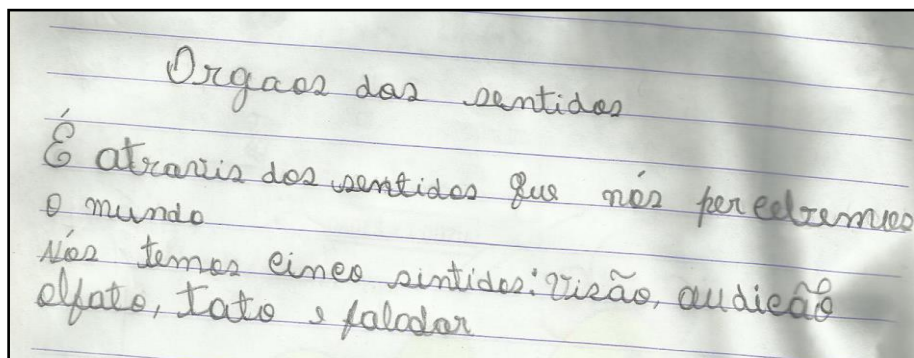 Orgaos dos sentidos
É atravis dos sentidos que nós percebremos
o mundo
Nós temos cinco sintidos: Visão, audicão
olfato, tato e falodar